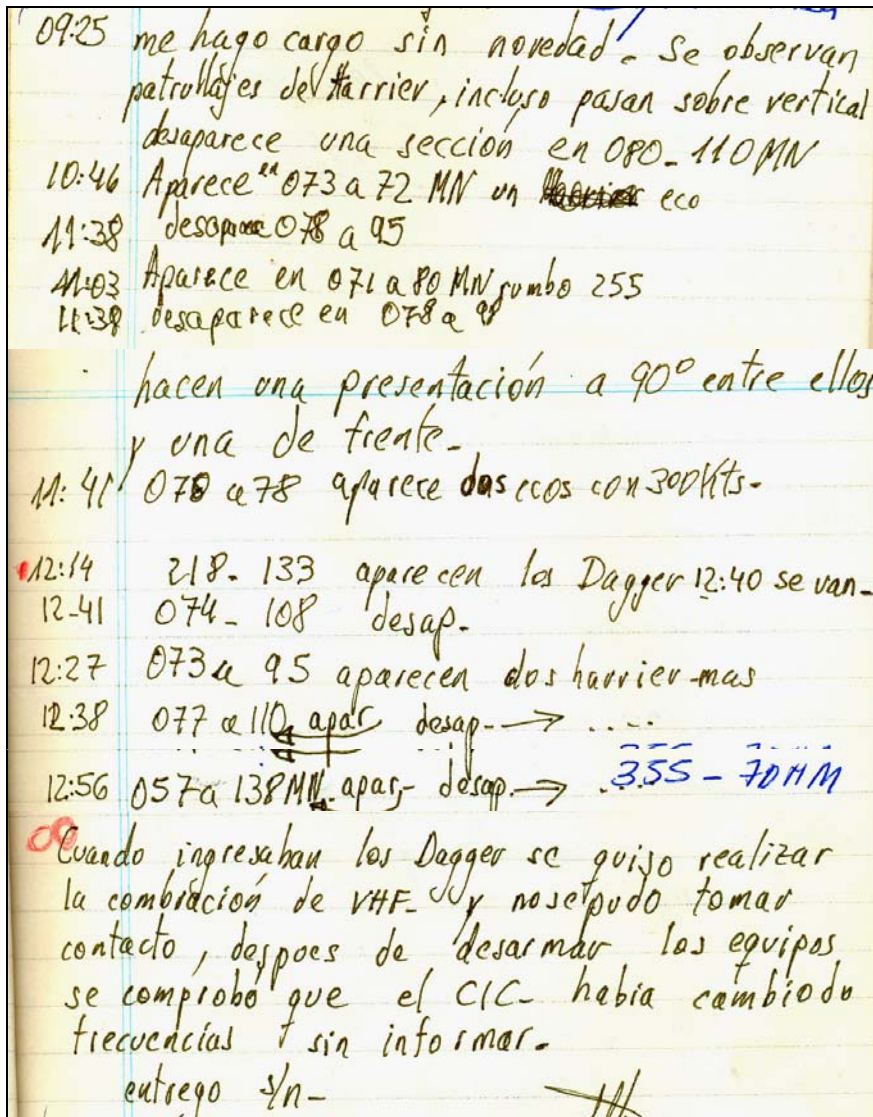 09:25 me hago cargo sin novedad. Se observan
patrullajes del Harrier, incluso pasan sobre vertical
desaparece una sección en 080-110 MN
10:46 Aparece en 073 a 72 MN un eco
11:38 desaparece 078 a 95
11:03 Aparece en 071 a 80 MN rumbo 255
11:38 desaparece en 078 a 98
hacen una presentación a 90° entre ellos
y una de frente-
11:41 070 a 78 aparece dos ecos con 300 Kts-
12:14 218-133 aparecen los Dagger 12:40 se van-
12-41 074-108 desap-
12:27 073 a 95 aparecen dos harrier-mas
12:38 077 a 110 apar desap-→ ....
12:56 057 a 138 MN apar,- desap.→ .... 355-70HM
Cuando ingresaban los Dagger se quiso realizar
la combiación de VHF- y no se pudo tomar
contacto, despoes de desarmar los equipos
se comprobó que el CIC- habia cambiodo
frecuencias sin informar-
entrego s/n-